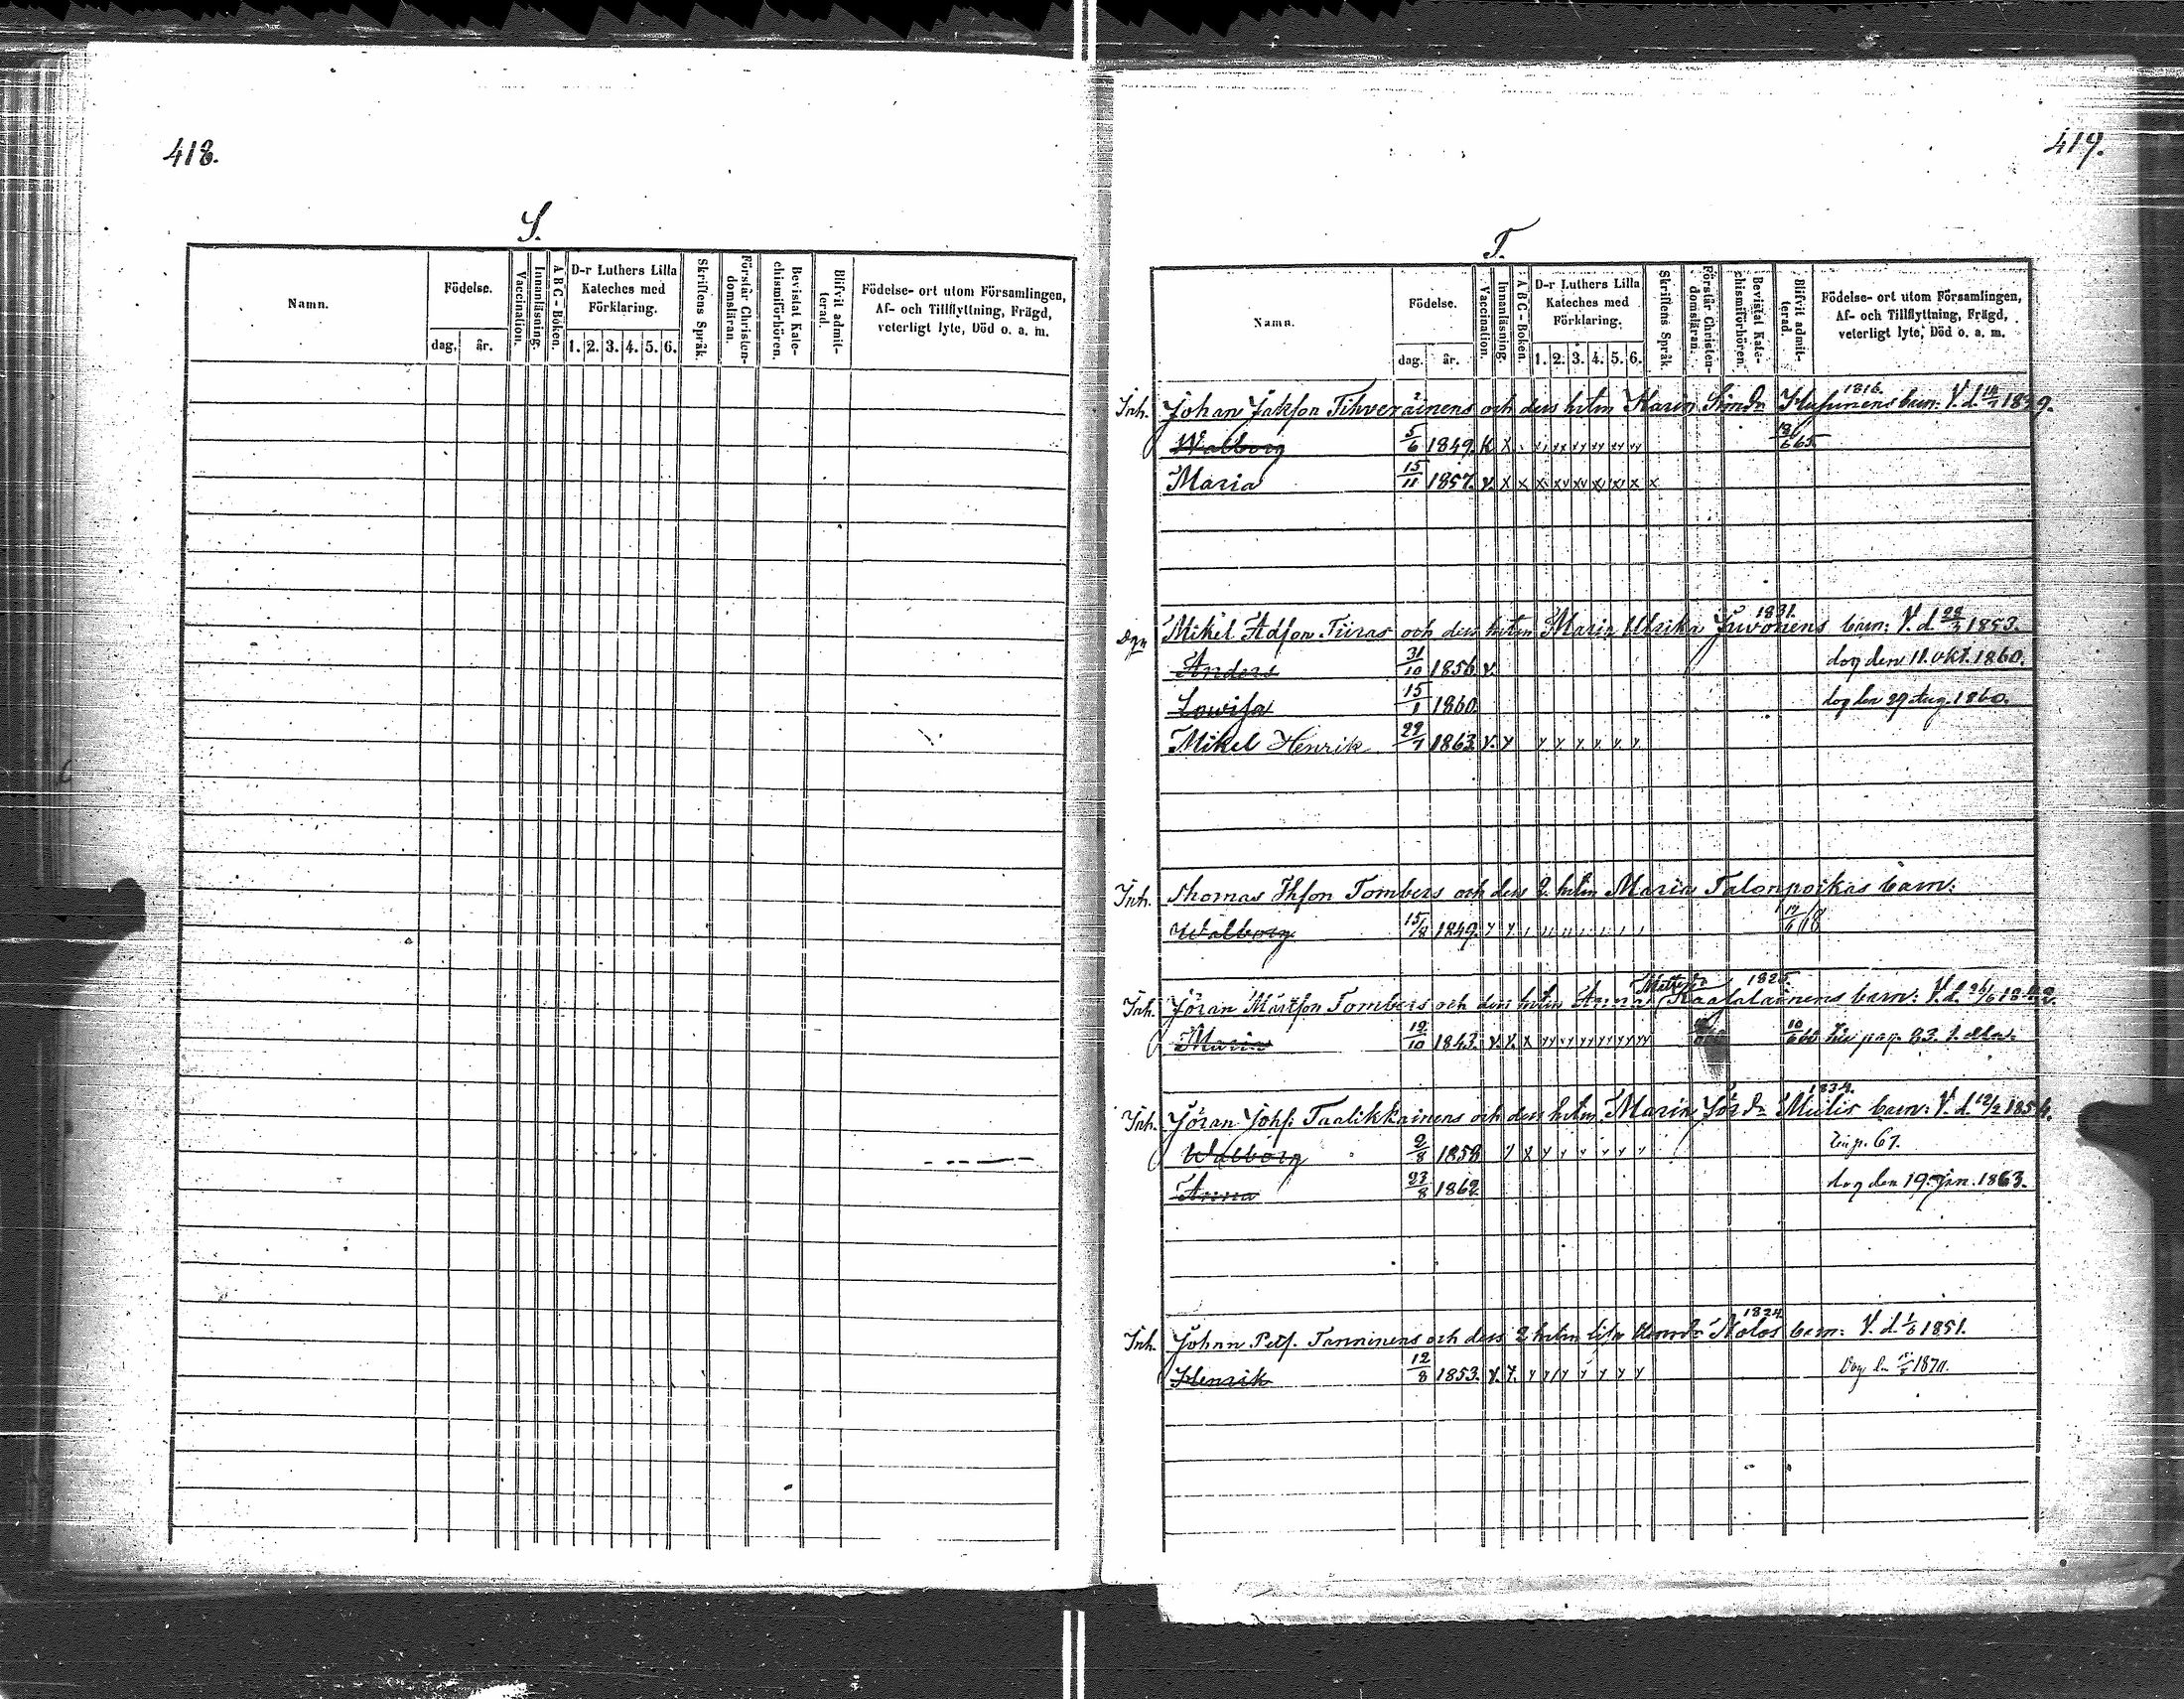 418.
S.
Namn.
Födelse.
dag. år.
Vaccination.
Innanläsning.
ABC-Boken.
D-r Luthers Lilla
Kateches med
Förklaring.
1. 2. 3. 4. 5. 6.
Skriftens Språk.
Förstår Christen-
domsläran.
Bevistat Kate-
chismiförhören.
Blifvit admit-
terad.
Födelse- ort utom Församlingen,
Af- och Tillflyttning, Frägd,
veterligt lyte, Död o. a. m.
419.
T.
Namn.
Födelse.
dag. år.
Vaccination.
Innanläsning.
ABC-Boken.
D-r Luthers Lilla
Kateches med
Förklaring.
1. 2. 3. 4. 5. 6.
Skriftens Språk.
Förstår Christen-
domsläran.
Bevistat Kate-
chismiförhören.
Blifvit admit-
terad.
Födelse- ort utom Församlingen,
Af- och Tillflyttning, Frägd,
veterligt lyte, Död o. a. m.
1816.
Inh. Johan Jakson Tihveräinens och dess hstm Karin Simdr barn: V. d. 1839.
Walborg 5/6 1849. 18/6 65.
Maria 15/11 1857. v. x x x x x x x x x
1831.
Mikel Adson Tiiras och dess hstm Maria Ulrika Juvonens barn: V. d. 1853.
Anders 31/10 1856. v. dog den 11. okt. 1860.
Lowisa 15/1 1860 dog den 29 Aug. 1860.
Mikel Henrik 1863. v. v
Inh. Thomas Thson Tombers och dess 2 hstm Maria Talonpoikas barn:
Walborg 15/8 1849.
1825.
Inh. Jöran Mårtson Tombers och dess hstm Anna Kaalalainens barn: V. d.
Maria 19/10 1843. v. v. x 10/6 60 pag. 83.
1834.
Inh. Jöran Johs. Taalikkainens och dess hstm Maria Jör dr barn: V. d. 12/2 1854.
Walborg 2/8 1859 p. 67.
Anna 23/8 1862. dog den 19. jan. 1863.
1824
Inh. Johan Pets. Tanninens och dess 2 hstm Lisa Nolos barn: V. d. 1/6 1851.
Henrik 12/8 1853. v. v. Dog den 1870.